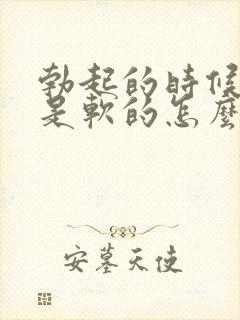 勃起的時候
是軟的怎麼
安墓天使